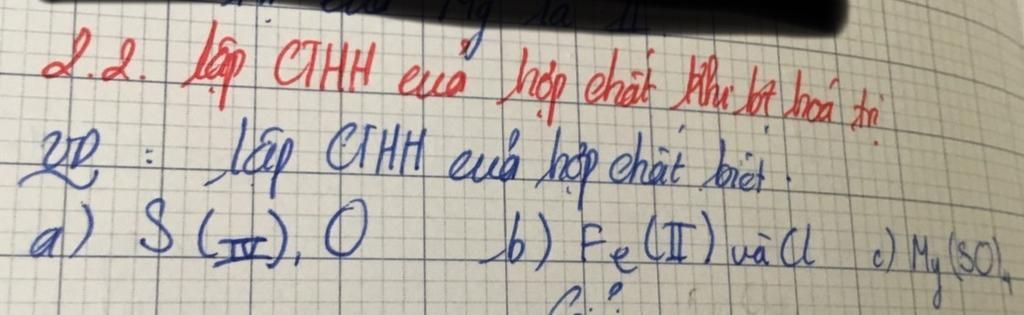 Mg là II
2.2. lập CTHH của hợp chất khi bt hoá trị
VD : lập CTHH của hợp chất biết.
a) S (IV), O b) Fe (II) và Cl c) Mg (SO)₄